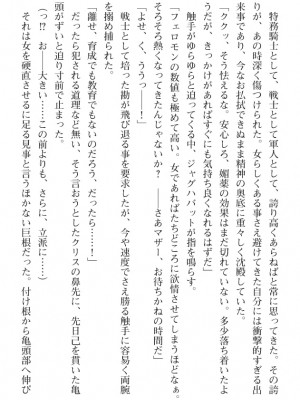 特務騎士として、戦士として軍人として、誇り高くあらねばと常に思ってきた。誇
りが、あの時深く傷つけられた。女らしくある事さえ避けてきた自分には衝撃的すぎる出
来事であり、今なお払拭できぬまま精神の奥底に重々しく沈殿していた。
「ククッ、そう怯えるな。安心しろ、媚薬の効果はまだ切れていない。多少落ち着いたよ
うだが、きっかけがあればすぐにも気持ち良くなれるはずだ」
触手がゆらゆらと迫ってくる中、ジャグバットが指を鳴らす。
「フェロモンの数値も極めて高い。女であればたちどころに欲情させてしまうほどなぁ。
そろそろ熱くなってきたんじゃないか？　――さあマザー、お待ちかねの時間だ」
「よせ、く、ううっ――！」
戦士として培った勘が飛び退る事を要求したが、今や速度でさえ勝る触手に容易く両腕
を搦め捕られた。
「離せ、育成でも教育でもないのだろう、だったら……！」
だったら犯される道理など無い、そう言おうとしたクリスの鼻先に、先日己を貫いた亀
頭がずいと迫り寸前で止まった。
（っ!?　お――大きい……この前よりも、さらに、立派に……）
それは女を硬直させるに足る見事と言うほかない巨根だった。付け根から亀頭部へ伸び